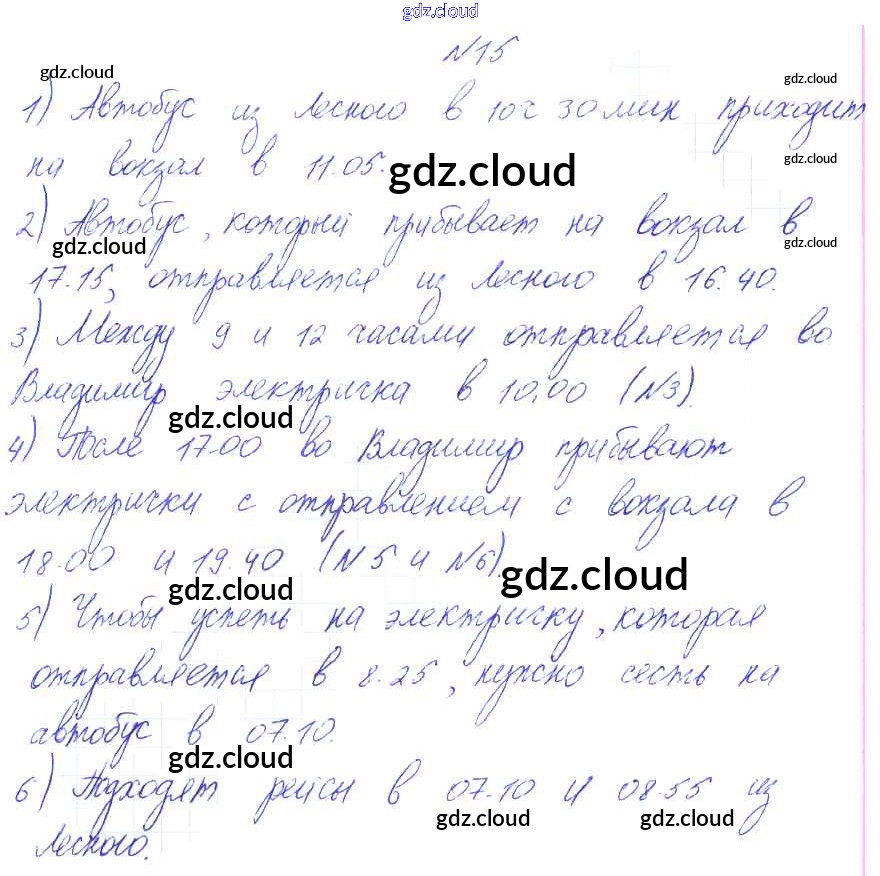 gdz.cloud
N15
gdz.cloud gdz.cloud
1) Автобус из Лесного в 10ч 30мин приходит
на вокзал в 11.05. gdz.cloud gdz.cloud
2) Автобус, который прибывает на вокзал в
gdz.cloud gdz.cloud
17.15, отправляется из Лесного в 16.40.
3) Между 9 и 12 часами отправляется во
Владимир электричка в 10.00 (N3).
gdz.cloud
4) После 17.00 во Владимир прибывают
электрички с отправлением с вокзала в
18.00 и 19.40 (N5 и N6).
gdz.cloud gdz.cloud
5) Чтобы успеть на электриску, которая
отправляется в 8.25, нужно сесть на
автобус в 07.10.
gdz.cloud
6) Подходят рейсы в 07.10 и 08.55 из
gdz.cloud gdz.cloud
Лесного.